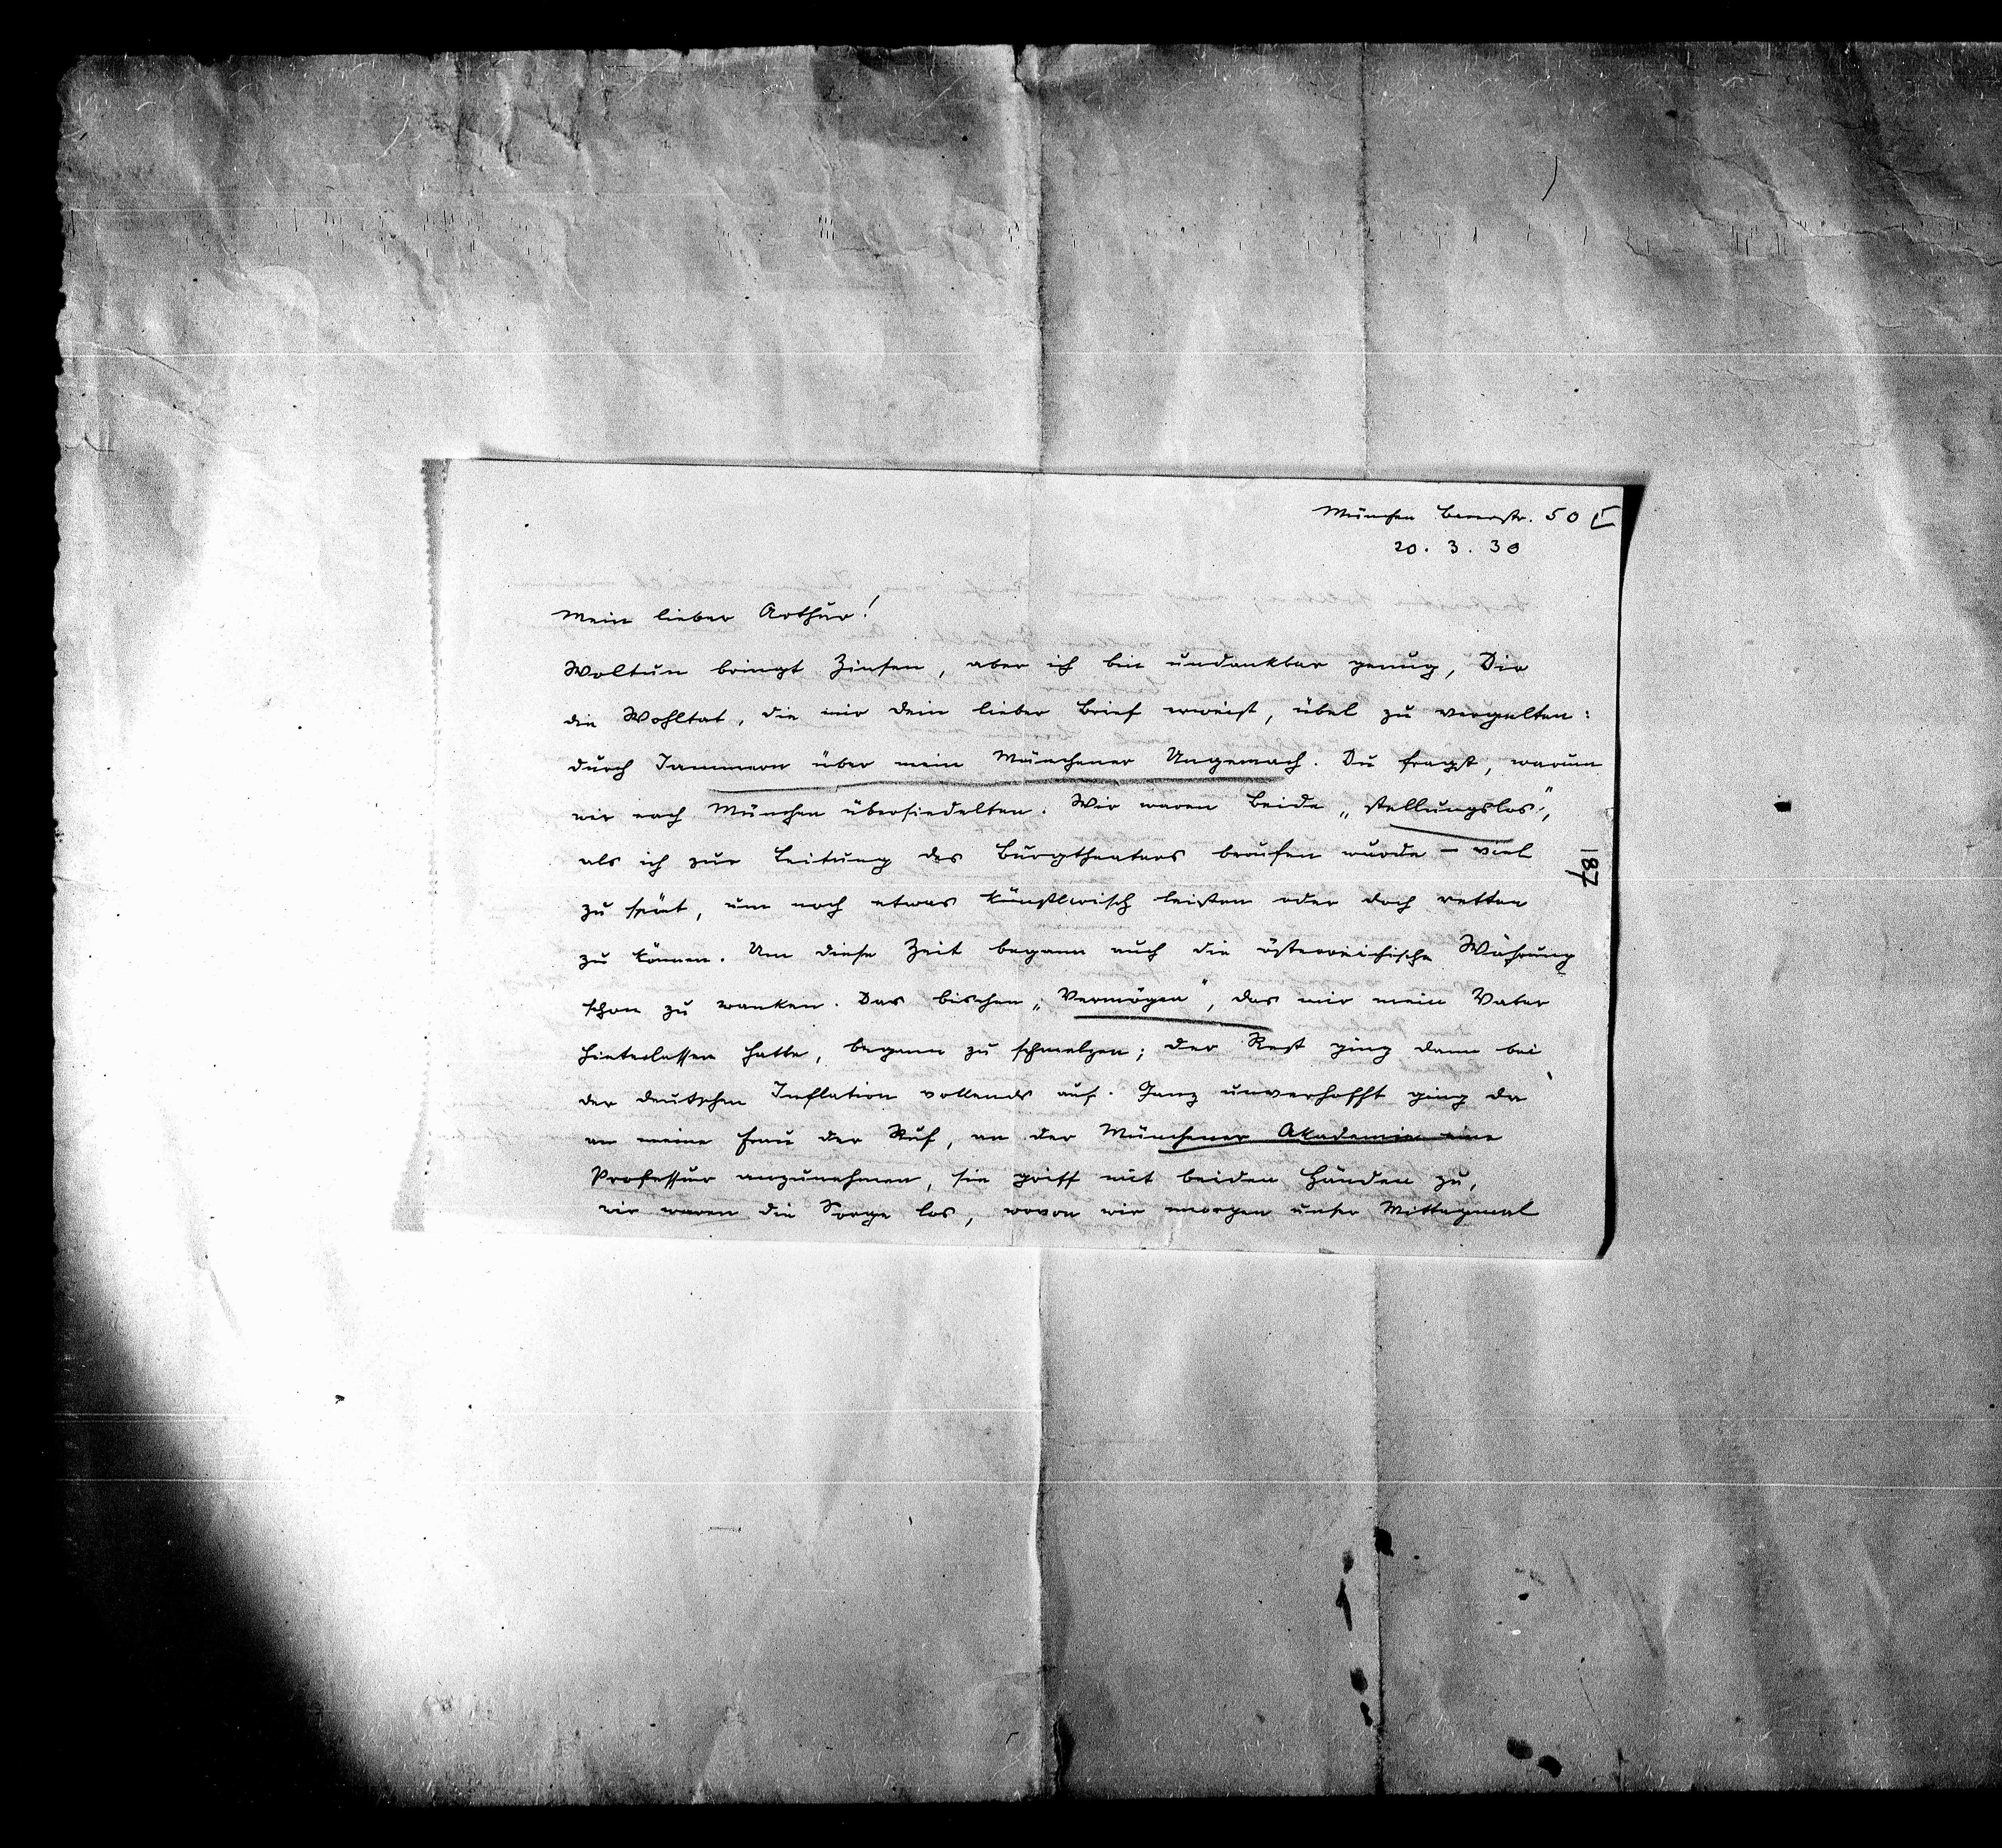 München Barerstr. 50 I
20. 3. 30
Mein lieber Arthur!
Woltun bringt Zinsen, aber ich bin undankbar genug, Dir
die Wohltat, die mir dein lieber Brief erweist, übel zu vergelten:
durch Jammern über mein Münchener Ungemach. Du fragst, warum
wir nach München übersiedelten. Wir waren beide „stellungslos“,
als ich zur Leitung des Burgtheaters berufen wurde – viel
zu spät, um noch etwas künstlerisch leisten oder doch retten
zu können. Um diese Zeit begann auch die österreichische Währung
schon zu wanken. Das bischen „Vermögen“, das mir mein Vater
hinterlassen hatte, begann zu schmelzen; der Rest ging dann bei
der deutschen Inflation vollends auf. Ganz unverhofft ging da
an meine Frau der Ruf, an der Münchener Akademie eine
Professur anzunehmen, sie griff mit beiden Händen zu,
wir waren die Sorge los, wovon wir morgen unser Mittagmal
187